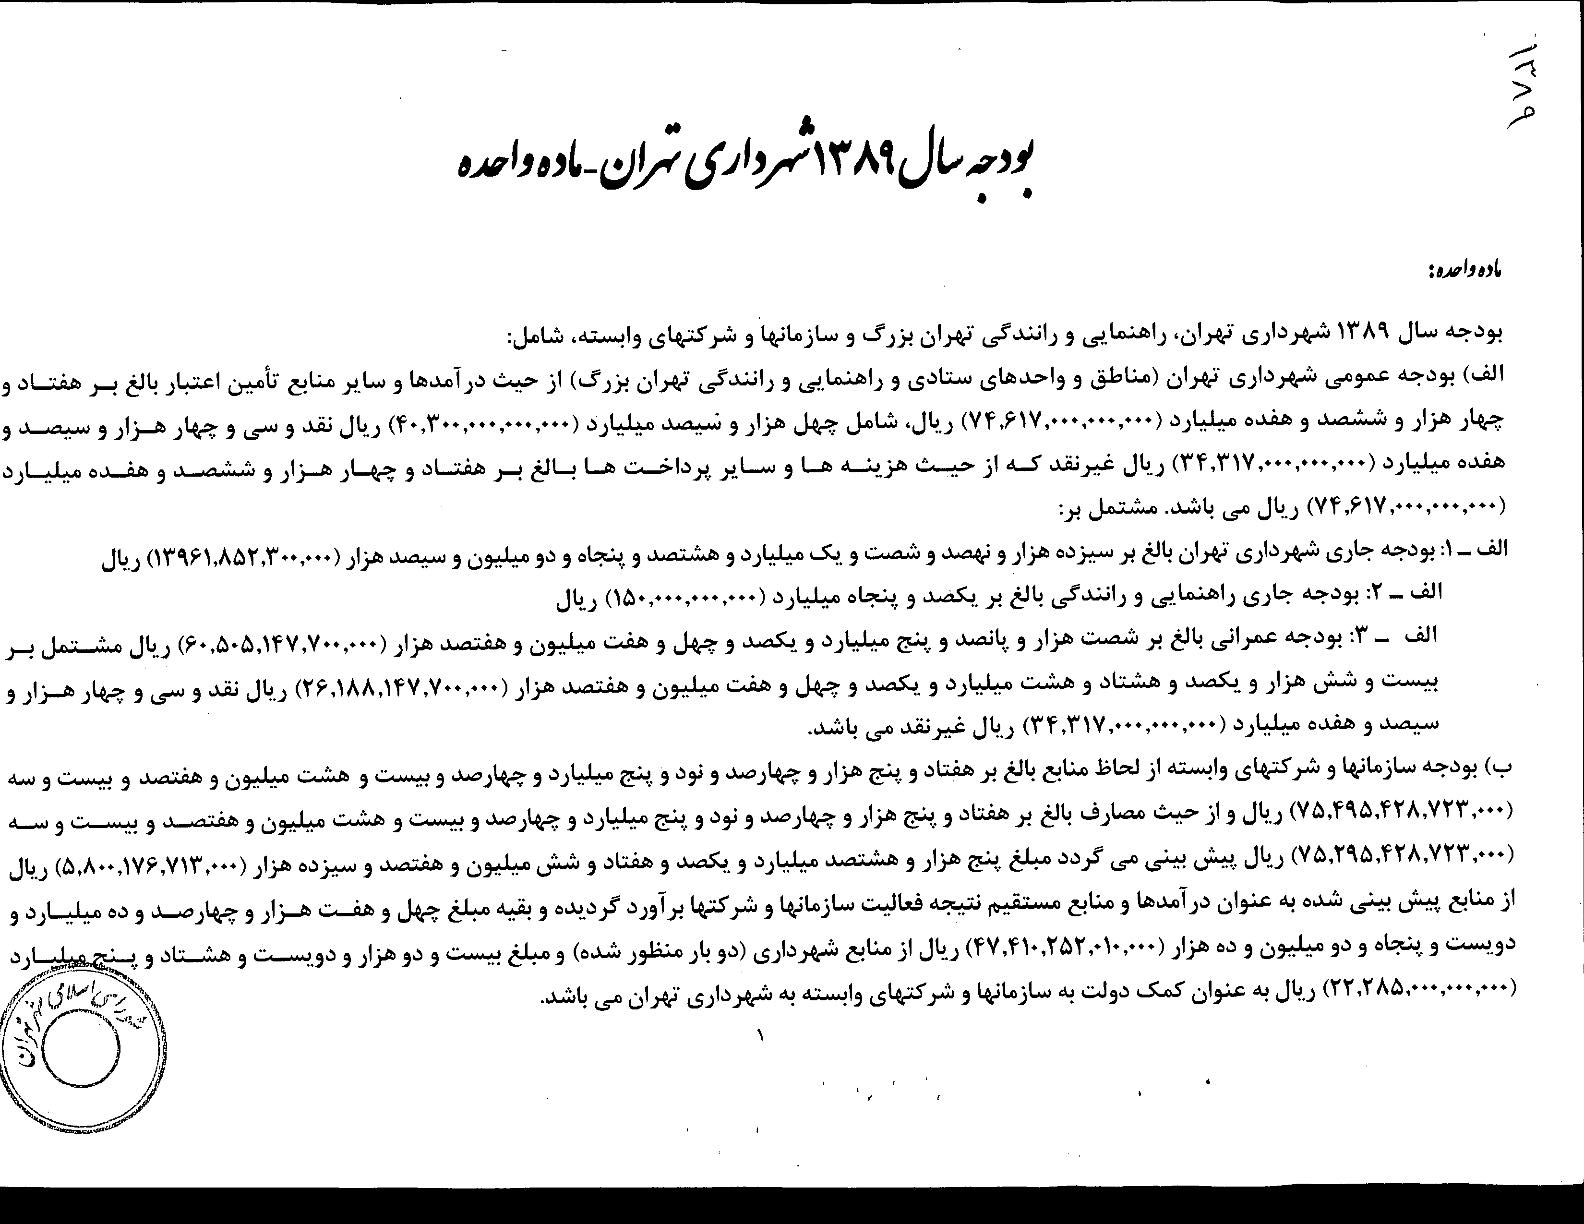 ۱۳۸۹
بودجه سال ۱۳۸۹ شهرداری تهران-ماده واحده
ماده واحده:
بودجه سال ۱۳۸۹ شهرداری تهران، راهنمایی و رانندگی تهران بزرگ و سازمانها و شرکتهای وابسته، شامل:
الف) بودجه عمومی شهرداری تهران (مناطق و واحدهای ستادی و راهنمایی و رانندگی تهران بزرگ) از حیث درآمدها و سایر منابع تأمین اعتبار بالغ بر هفتاد و
چهار هزار و ششصد و هفده میلیارد (۷۴,۶۱۷,۰۰۰,۰۰۰,۰۰۰) ریال، شامل چهل هزار و سیصد میلیارد (۴۰,۳۰۰,۰۰۰,۰۰۰,۰۰۰) ریال نقد و سی و چهار هزار و سیصد و
هفده میلیارد (۳۴,۳۱۷,۰۰۰,۰۰۰,۰۰۰) ریال غیرنقد که از حیث هزینه ها و سایر پرداخت ها بالغ بر هفتاد و چهار هزار و ششصد و هفده میلیارد
(۷۴,۶۱۷,۰۰۰,۰۰۰,۰۰۰) ریال می باشد. مشتمل بر:
الف ـ ۱: بودجه جاری شهرداری تهران بالغ بر سیزده هزار و نهصد و شصت و یک میلیارد و هشتصد و پنجاه و دو میلیون و سیصد هزار (۱۳۹۶۱,۸۵۲,۳۰۰,۰۰۰) ریال
الف ـ ۲: بودجه جاری راهنمایی و رانندگی بالغ بر یکصد و پنجاه میلیارد (۱۵۰,۰۰۰,۰۰۰,۰۰۰) ریال
الف ـ ۳: بودجه عمرانی بالغ بر شصت هزار و پانصد و پنج میلیارد و یکصد و چهل و هفت میلیون و هفتصد هزار (۶۰,۵۰۵,۱۴۷,۷۰۰,۰۰۰) ریال مشتمل بر
بیست و شش هزار و یکصد و هشتاد و هشت میلیارد و یکصد و چهل و هفت میلیون و هفتصد هزار (۲۶,۱۸۸,۱۴۷,۷۰۰,۰۰۰) ریال نقد و سی و چهار هزار و
سیصد و هفده میلیارد (۳۴,۳۱۷,۰۰۰,۰۰۰,۰۰۰) ریال غیرنقد می باشد.
ب) بودجه سازمانها و شرکتهای وابسته از لحاظ منابع بالغ بر هفتاد و پنج هزار و چهارصد و نود و پنج میلیارد و چهارصد و بیست و هشت میلیون و هفتصد و بیست و سه
(۷۵,۴۹۵,۴۲۸,۷۲۳,۰۰۰) ریال و از حیث مصارف بالغ بر هفتاد و پنج هزار و چهارصد و نود و پنج میلیارد و چهارصد و بیست و هشت میلیون و هفتصد و بیست و سه
(۷۵,۲۹۵,۴۲۸,۷۲۳,۰۰۰) ریال پیش بینی می گردد مبلغ پنج هزار و هشتصد میلیارد و یکصد و هفتاد و شش میلیون و هفتصد و سیزده هزار (۵,۸۰۰,۱۷۶,۷۱۳,۰۰۰) ریال
از منابع پیش بینی شده به عنوان درآمدها و منابع مستقیم نتیجه فعالیت سازمانها و شرکتها برآورد گردیده و بقیه مبلغ چهل و هفت هزار و چهارصد و ده میلیارد و
دویست و پنجاه و دو میلیون و ده هزار (۴۷,۴۱۰,۲۵۲,۰۱۰,۰۰۰) ریال از منابع شهرداری (دو بار منظور شده) و مبلغ بیست و دو هزار و دویست و هشتاد و پنج میلیارد
(۲۲,۲۸۵,۰۰۰,۰۰۰,۰۰۰) ریال به عنوان کمک دولت به سازمانها و شرکتهای وابسته به شهرداری تهران می باشد.
۱
شورای اسلامی شهر تهران